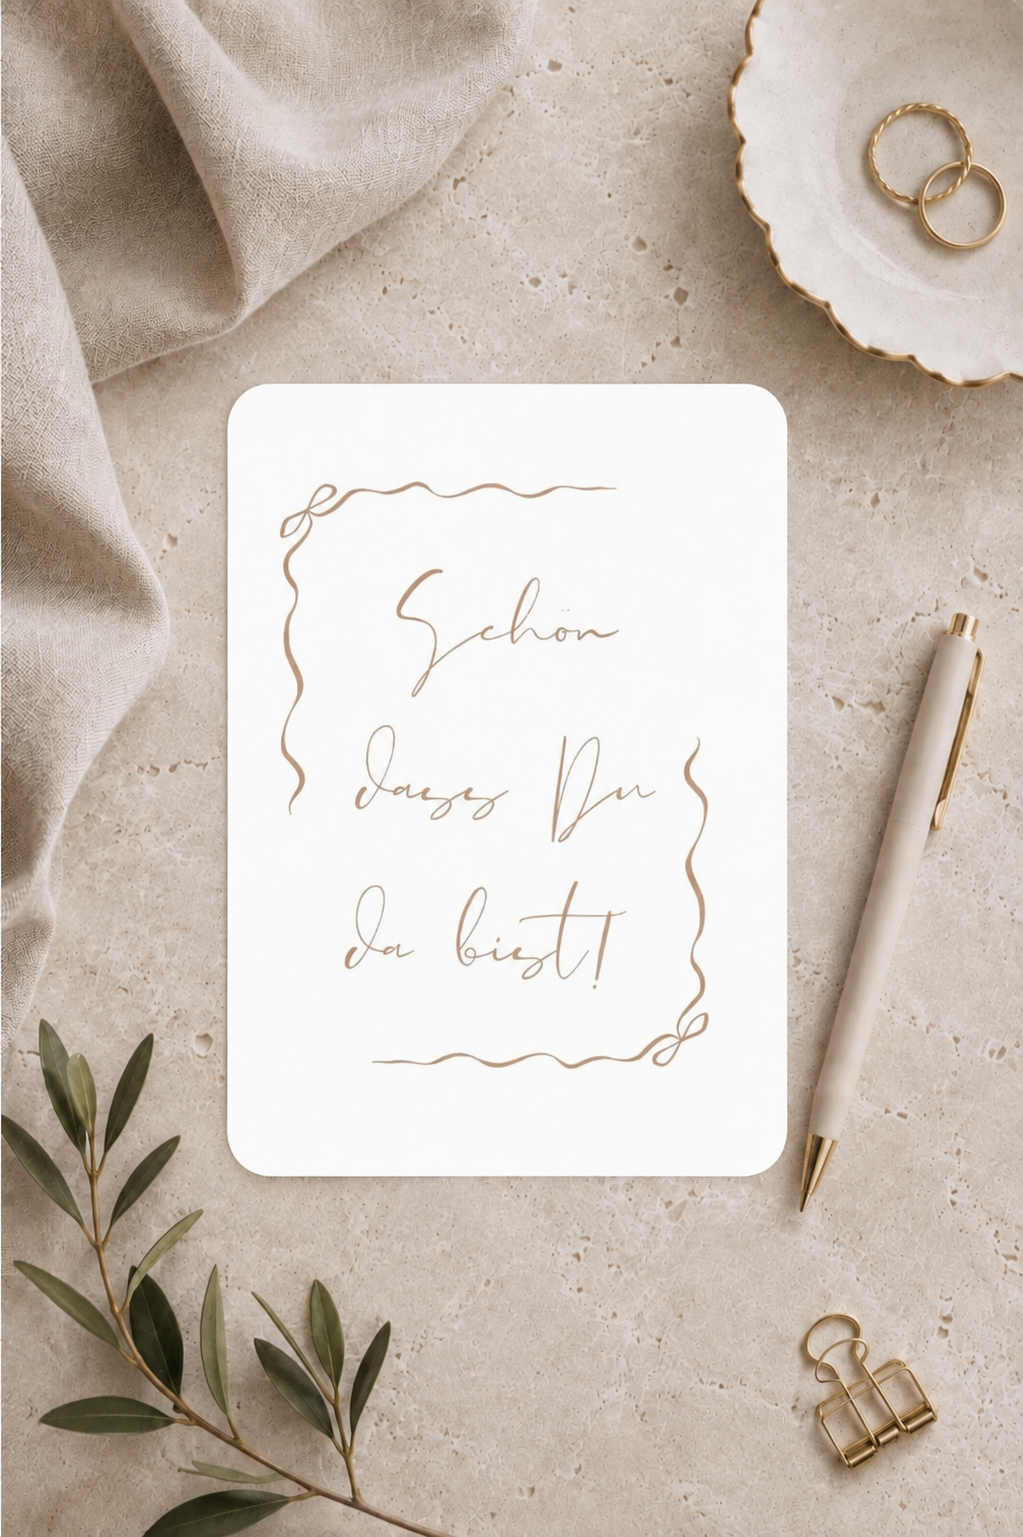 Schön
dass Du
da bist!